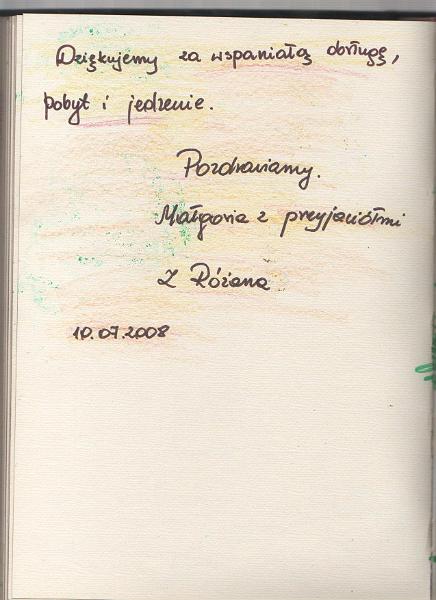 Dziękujemy za wspaniałą obsługę,
pobyt i jedzenie.
Pozdrawiamy.
Małgosia z przyjaciółmi
Z Różana
10.07.2008